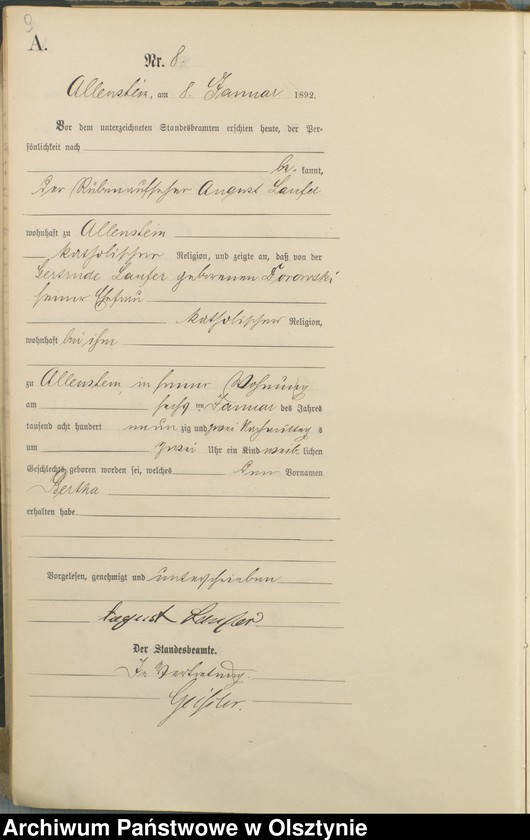 9
A.
Nr. 8
Allenstein, am 8. Januar 1892.
Vor dem unterzeichneten Standesbeamten erschien heute, der Per-
sönlichkeit nach
be kannt,
der August Laufer
wohnhaft zu Allenstein
katholischer Religion, und zeigte an, daß von der
Gertrude Laufer geborenen
seiner Ehefrau
katholischer Religion,
wohnhaft bei ihm
zu Allenstein in seiner Wohnung
am sechs ten Januar des Jahres
tausend acht hundert neun zig und zwei Nachmittag s
um zwei Uhr ein Kind weib lichen
Geschlechts geboren worden sei, welches den Vornamen
Bertha
erhalten habe
Vorgelesen, genehmigt und unterschrieben
August Laufer
Der Standesbeamte.
In Vertretung.
Geisler.
Archiwum Państwowe w Olsztynie